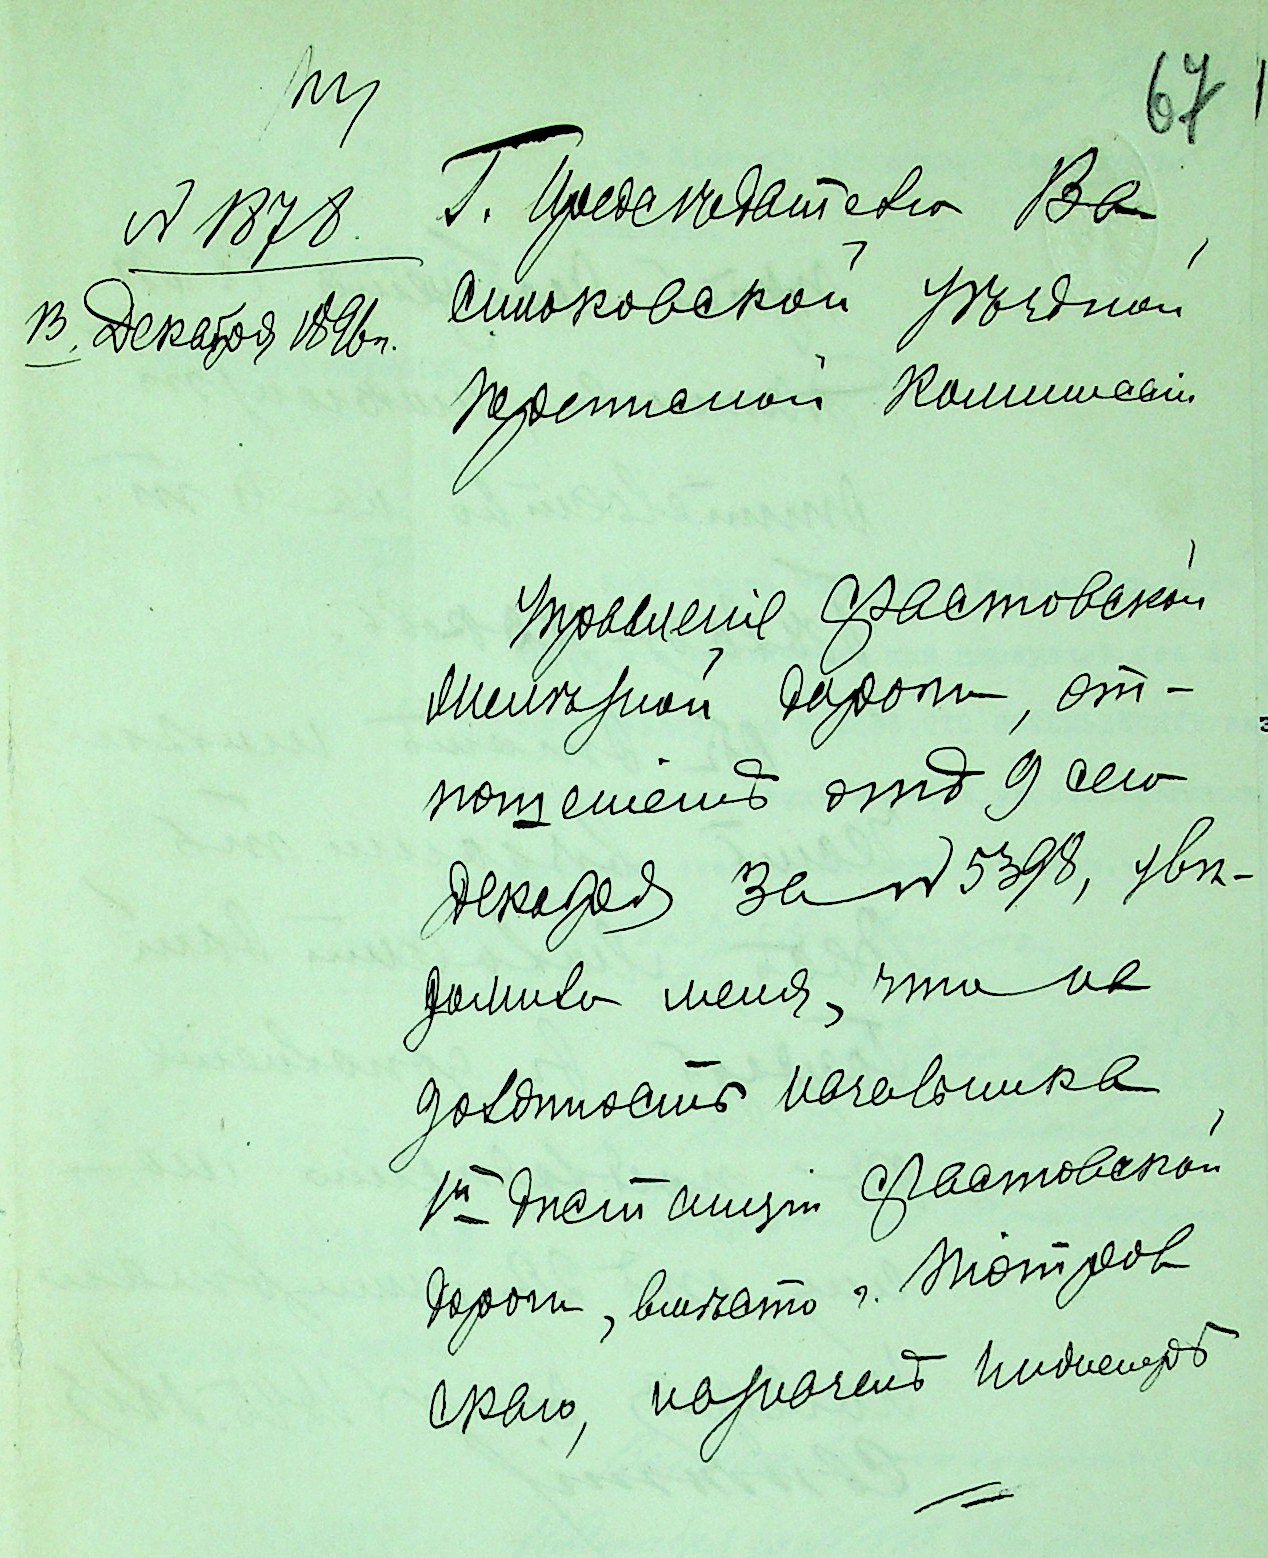 67
№ 1878
13. Декабря 1896 г.
Г. Председателю Ва
сильковской уѣздной
переписной Коммиссіи
Управленіе Фастовской
желѣзной дороги, от-
ношеніемъ отъ 9 сего
декабря за № 5398, увѣ-
домило меня, что на
должность начальника
1й дистанціи Фастовской
дороги, вмѣсто г. Піотров
скаго, назначенъ инженеръ